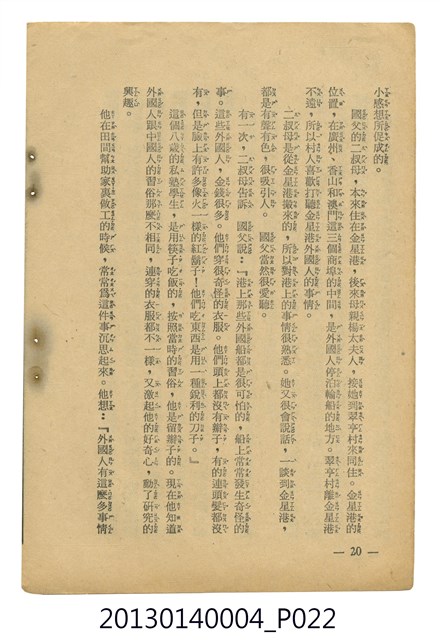 小感想所促成的。
國父的二叔母，本來住在金星港，後來母親楊太夫人，接她到翠亨村來同住。金星港的
位置，在廣州、香山和澳門這三個商埠的中間，是外國人停泊輪船的地方。翠亨村離金星港
不遠，所以村人喜歡打聽金星港外國人的事情。
二叔母是從金星港搬來的，所以對港上的事情很熟悉。她又很會說話，一談到金星港，
都是有聲有色，很吸引人。　國父當然很愛聽。
有一次，二叔母告訴　國父說：『港上那些外國船都是很可怕的，船上常常發生奇怪的
事。這些外國人，金錢很多。他們穿很奇怪的衣服。他們頭上都沒有辮子，有的連頭髮都沒
有，但是臉上有許多像火一樣的紅鬍子！他們吃東西是用一種銳利的刀子。』
這個八歲的私塾學生，是用筷子吃飯的，按照當時的習俗，他是留辮子的。現在他知道
外國人跟中國人的習俗那麼不相同，連穿的衣服都不一樣，又激起他的好奇心，動了研究的
興趣。
他在田間幫助家裏做工的時候，常常爲這件事沉思起來。他想：『外國人有這麼多事情
— 20 —
20130140004_P022